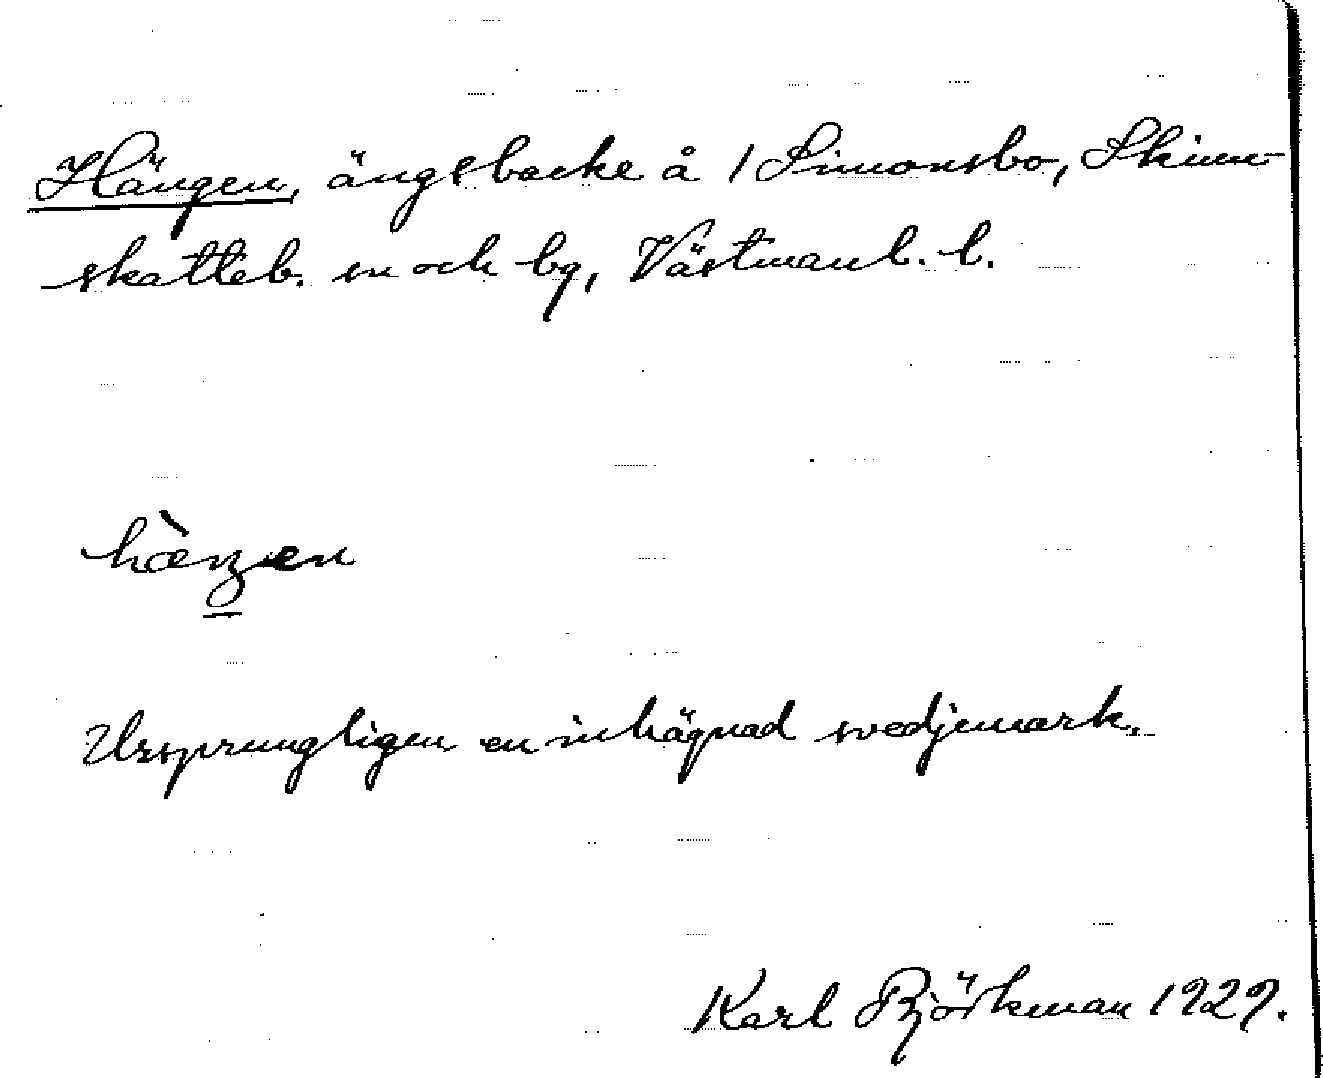 Hängen, ängsbacke å 1 Simonsbo, Skinn-
skatteb. sn och bg, Västmanl. l.
hæ̀ŋen
Ursprungligen en inhägnad svedjemark.
Karl Björkman 1929.